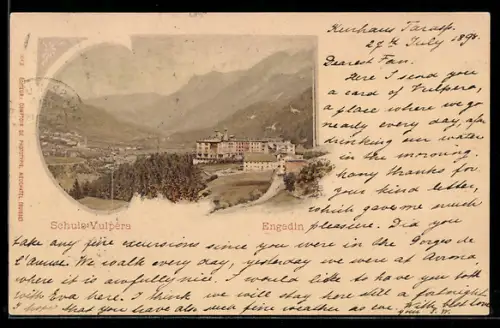 Kurhaus Tarasp.
27th July 1898.
Dearest Fan.
Here I send you
a card of Vulpera,
a place where we go
nearly every day, after
drinking our water
in the morning.
Many thanks for
your kind letter,
which gave me much
pleasure. Did you
take any fine excursions since you were in the Gorges de
l'Areuse. We walk every day, yesterday we were at Avrona
where it is awfully nice. I would like to have you both
with Eva here. I think we will stay here still a fortnight.
I hope that you have also such fine weather as
With best love
Schuls-Vulpera
Engadin